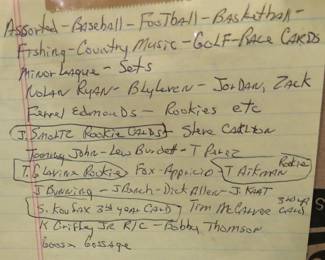 Assorted - Baseball - Football - Basketball -
Fishing - Country Music - Golf - Race Cards
Minor League - Sets
Nolan Ryan - Blyleven - Jordan, Zack
Ferrel Edmonds - Rookies etc
J. Smoltz Rookie Cards - Steve Carlton
Tommy John - Lew Burdett - T Perez
T. Glavine Rookie Fox - Apparicio T Aikman Rookie
J Bunning - J Bench - Dick Allen - J. Kaat
S. Koufax 3rd year Card Tim McCarver 3rd yr Card
K Griffey Jr R/C - Bobby Thomson
Goose Gossage